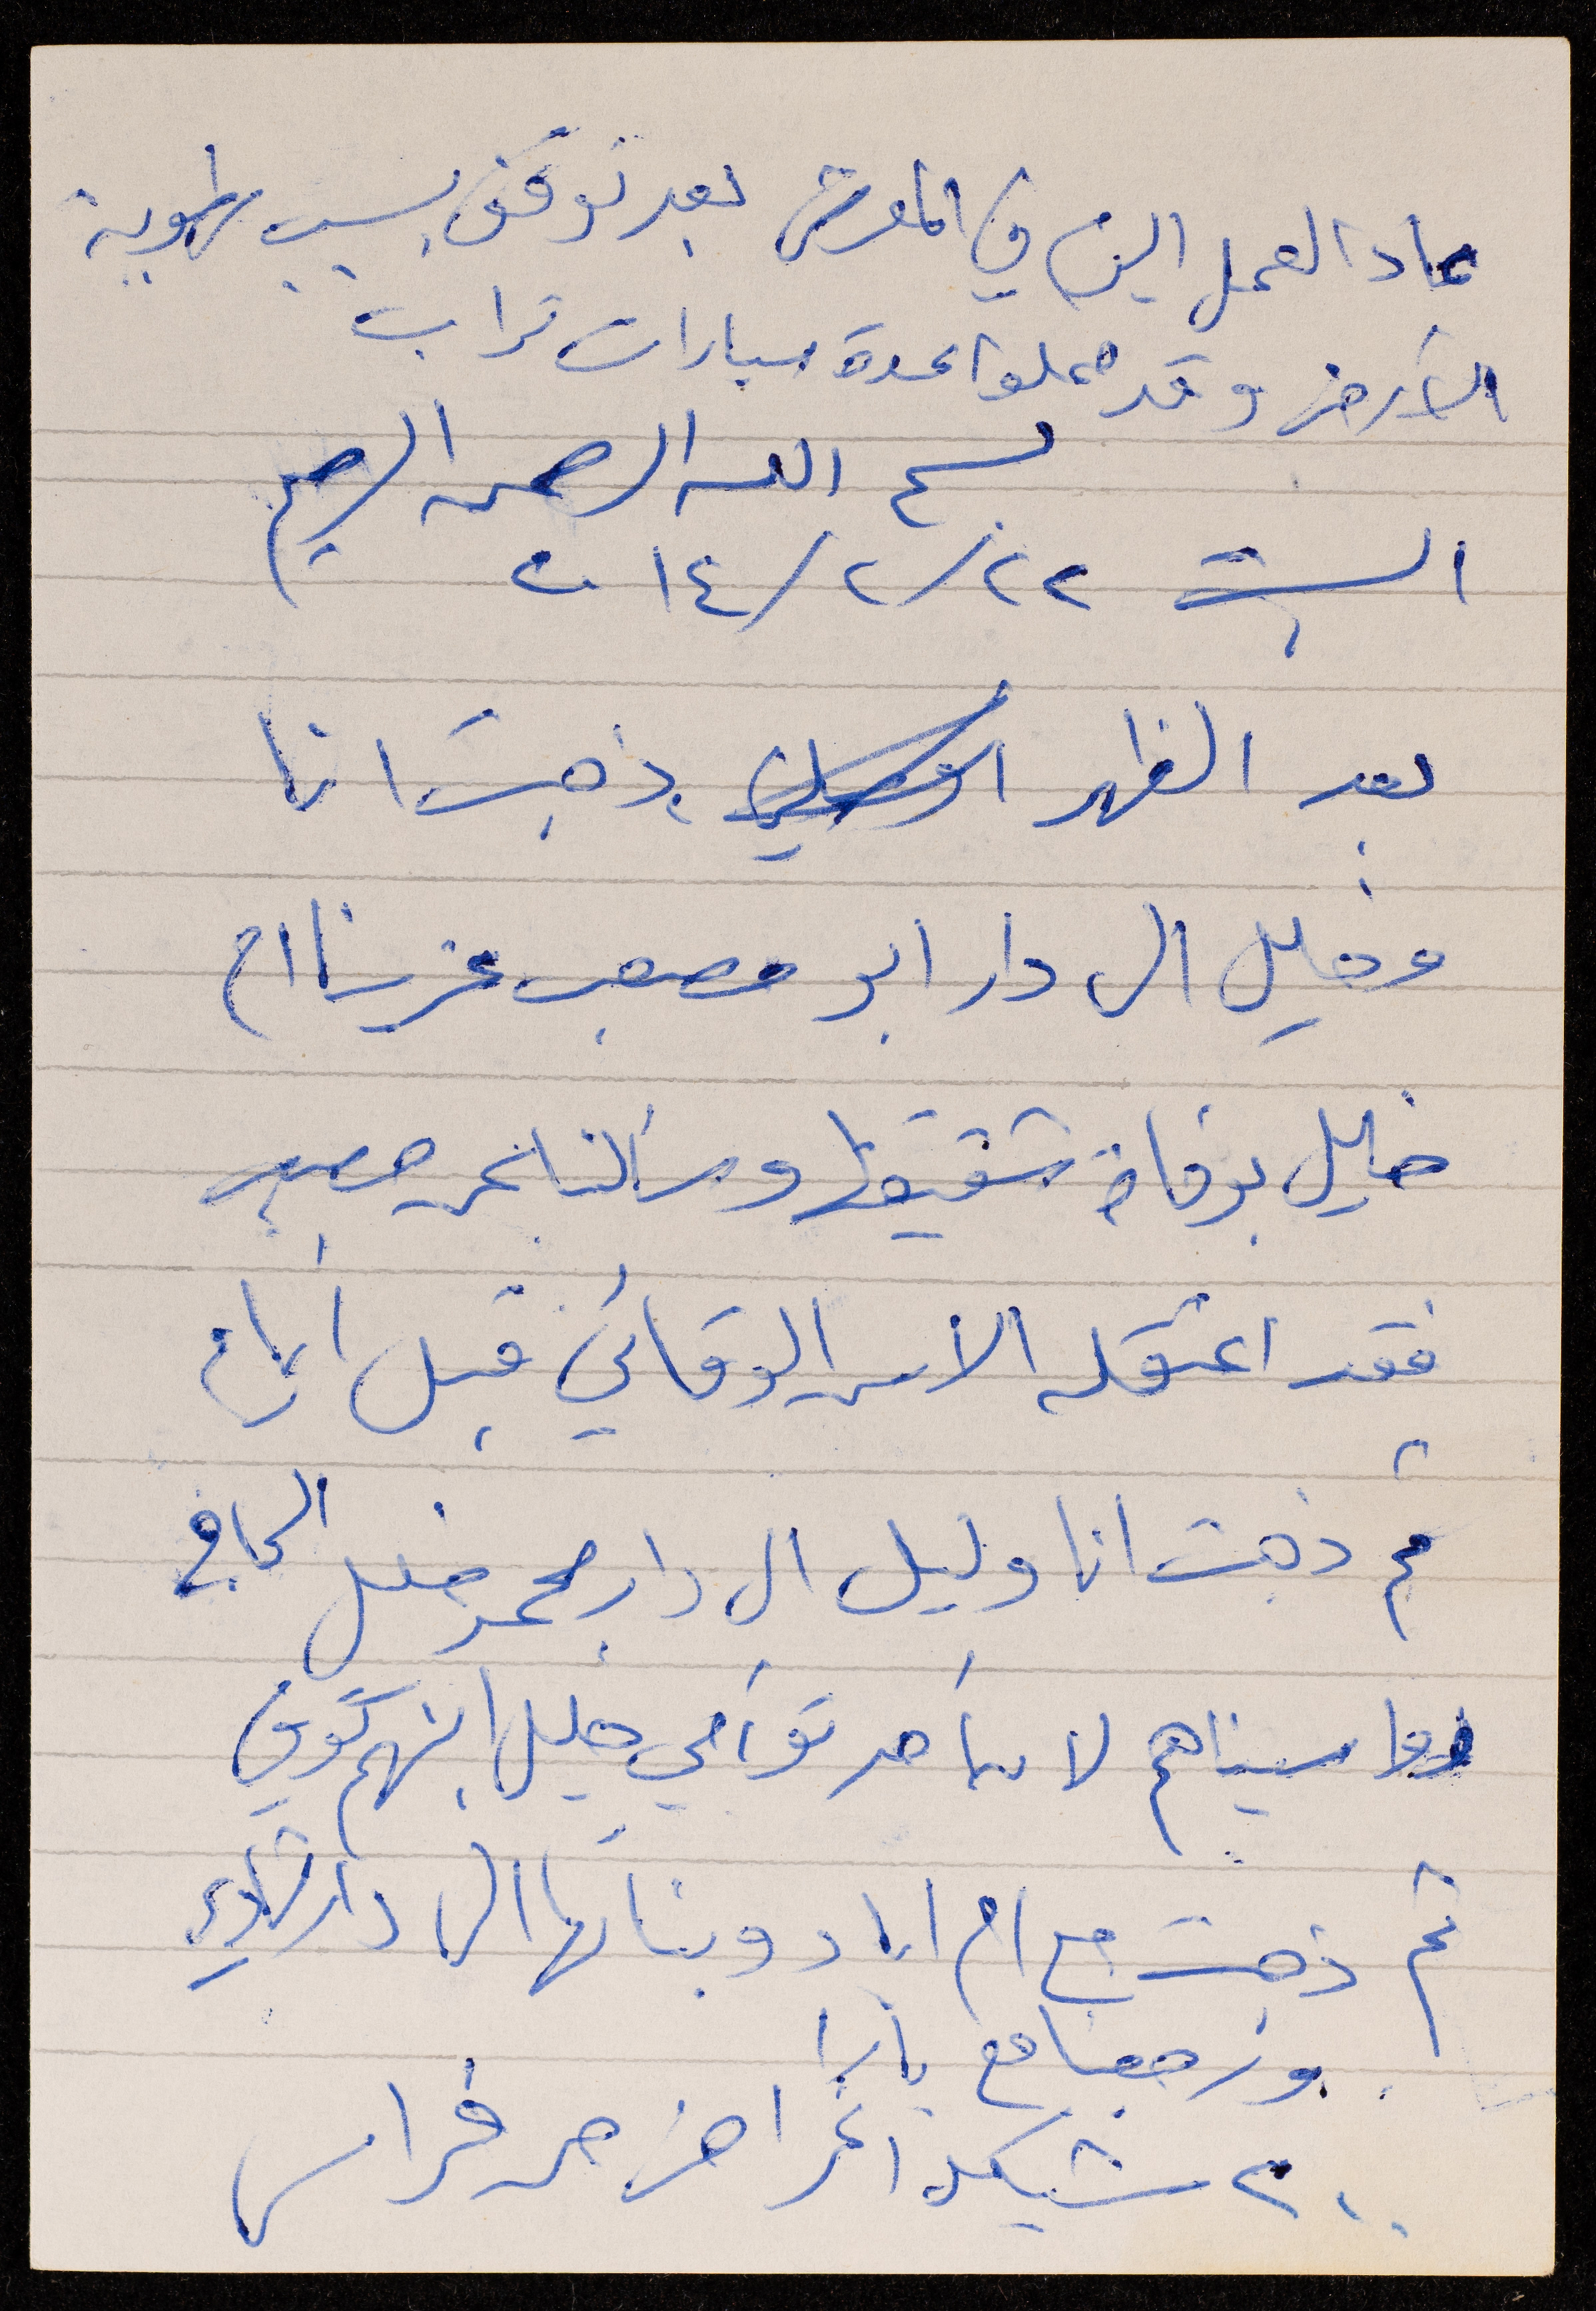 عاد العمل اليوم في المعرش بعد توقف بسبب رطوبة
الأرض وقد حملوا عدة سيارات تراب
بسم الله الرحمن الرحيم
السبت ٢٢/٢/٢٠١٤
بعد الظهر ذهبت انا
وخليل الى دار ابو مصعب عزينا ام
خليل بوفاة شقيقها وسألنا عن مصعب
فقد اعتقله الامن الوقائي قبل أيام
ثم ذهبت انا وليل الى دار محمد خليل الحافي
وواسيناهم لا سأحد توأمي خليل ابنهم توفي
ثم ذهبت مع ام اياد وبناتها الى دار شادي
ورجعنا مع يارا
٢٠٠ شيكل اغراض من فراس